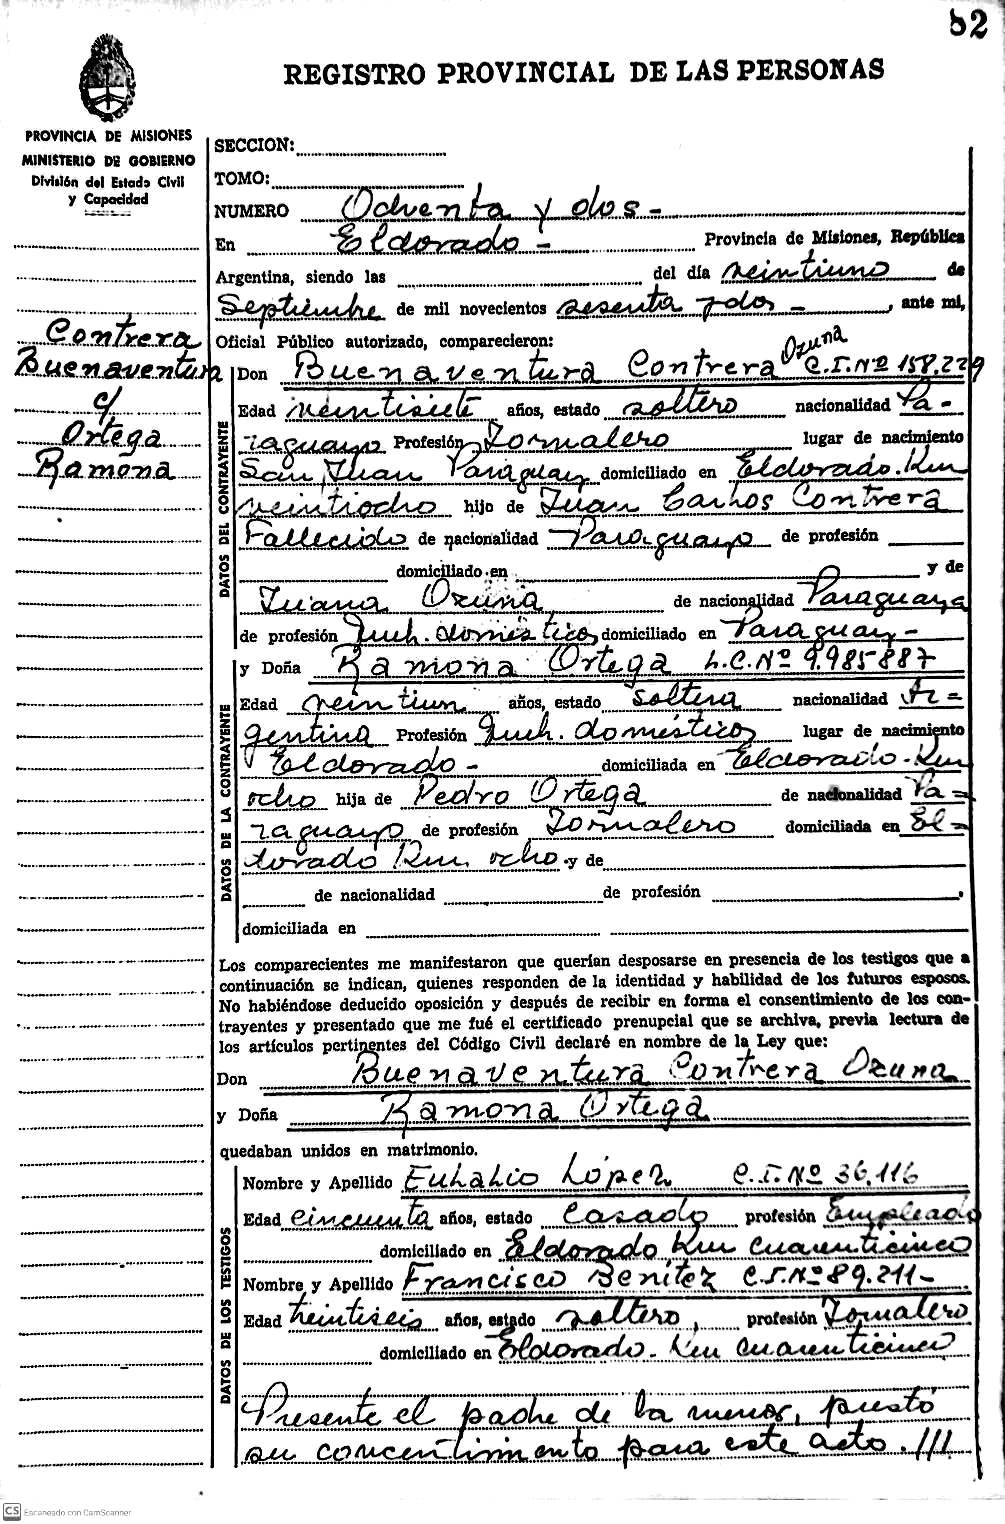 82
REGISTRO PROVINCIAL DE LAS PERSONAS
PROVINCIA DE MISIONES
MINISTERIO DE GOBIERNO
División del Estado Civil
y Capacidad
SECCION:
TOMO:
NUMERO Ochenta y dos -
En Eldorado - Provincia de Misiones, República
Argentina, siendo las del día veintiuno de
Septiembre de mil novecientos sesenta y dos - , ante mi,
Contrera
Buenaventura
c/
Ortega
Ramona
Oficial Público autorizado, comparecieron:
DATOS DEL CONTRAYENTE
Don Buenaventura Contrera Ozuna C.I.Nº 158.229
Edad veintisiete años, estado soltero nacionalidad Pa-
raguayo Profesión Jornalero lugar de nacimiento
San Juan Paraguay domiciliado en Eldorado. Km
veintiocho hijo de Juan Carlos Contrera
Fallecido de nacionalidad Paraguayo de profesión
domiciliado en y de
Juana Ozuna, de nacionalidad Paraguaya
de profesión Queh. doméstico, domiciliado en Paraguay -
DATOS DE LA CONTRAYENTE
y Doña Ramona Ortega L.C.Nº 9.985.887
Edad veintiun años, estado soltera nacionalidad Ar=
gentina Profesión Queh. doméstico lugar de nacimiento
Eldorado - domiciliada en Eldorado - Km
ocho hija de Pedro Ortega de nacionalidad Pa=
raguayo de profesión Jornalero domiciliada en El=
dorado Km ocho y de
de nacionalidad de profesión ,
domiciliada en
Los comparecientes me manifestaron que querían desposarse en presencia de los testigos que a
continuación se indican, quienes responden de la identidad y habilidad de los futuros esposos.
No habiéndose deducido oposición y después de recibir en forma el consentimiento de los con-
trayentes y presentado que me fué el certificado prenupcial que se archiva, previa lectura de
los artículos pertinentes del Código Civil declaré en nombre de la Ley que:
Don Buenaventura Contrera Ozuna
y Doña Ramona Ortega
quedaban unidos en matrimonio.
DATOS DE LOS TESTIGOS
Nombre y Apellido Eulalio López C.I.Nº 36.116
Edad cincuenta años, estado casado profesión Empleado
domiciliado en Eldorado Km cuarenticinco
Nombre y Apellido Francisco Benítez C.I.Nº 89.211-
Edad treintiseis años, estado soltero, profesión Jornalero
domiciliado en Eldorado - Km cuarenticinco
Presente el padre de la menor, prestó
su concentimiento para este acto. ///
CS Escaneado con CamScanner